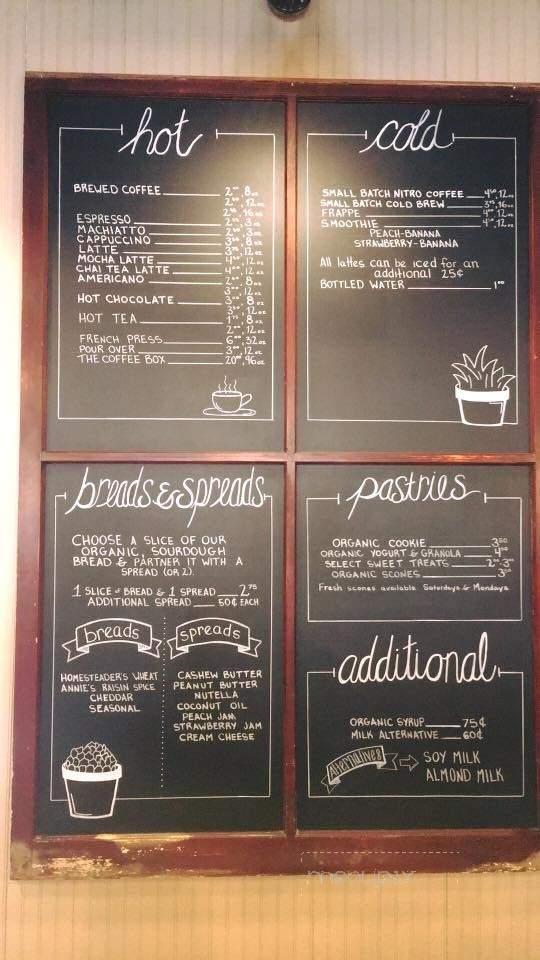 hot
BREWED COFFEE
ESPRESSO
MACHIATTO
CAPPUCCINO
LATTE
MOCHA LATTE
CHAI TEA LATTE
AMERICANO
HOT CHOCOLATE
HOT TEA
FRENCH PRESS 32oz
POUR OVER 12oz
THE COFFEE BOX 96oz
cold
SMALL BATCH NITRO COFFEE 12oz
SMALL BATCH COLD BREW 16oz
FRAPPE 12oz
SMOOTHIE 12oz
PEACH-BANANA
STRAWBERRY-BANANA
All lattes can be iced for an
additional 25¢
BOTTLED WATER
breads & spreads
CHOOSE A SLICE OF OUR
ORGANIC, SOURDOUGH
BREAD & PARTNER IT WITH A
SPREAD (OR 2).
1 SLICE of BREAD & 1 SPREAD 2.75
ADDITIONAL SPREAD 50¢ EACH
breads
HOMESTEADER'S WHEAT
ANNIE'S RAISIN SPICE
CHEDDAR
SEASONAL
spreads
CASHEW BUTTER
PEANUT BUTTER
NUTELLA
COCONUT OIL
PEACH JAM
STRAWBERRY JAM
CREAM CHEESE
pastries
ORGANIC COOKIE 3.50
ORGANIC YOGURT & GRANOLA
SELECT SWEET TREATS
ORGANIC SCONES
Fresh scones available Saturdays & Mondays
additional
ORGANIC SYRUP 75¢
MILK ALTERNATIVE 60¢
Alternatives
SOY MILK
ALMOND MILK
menupix